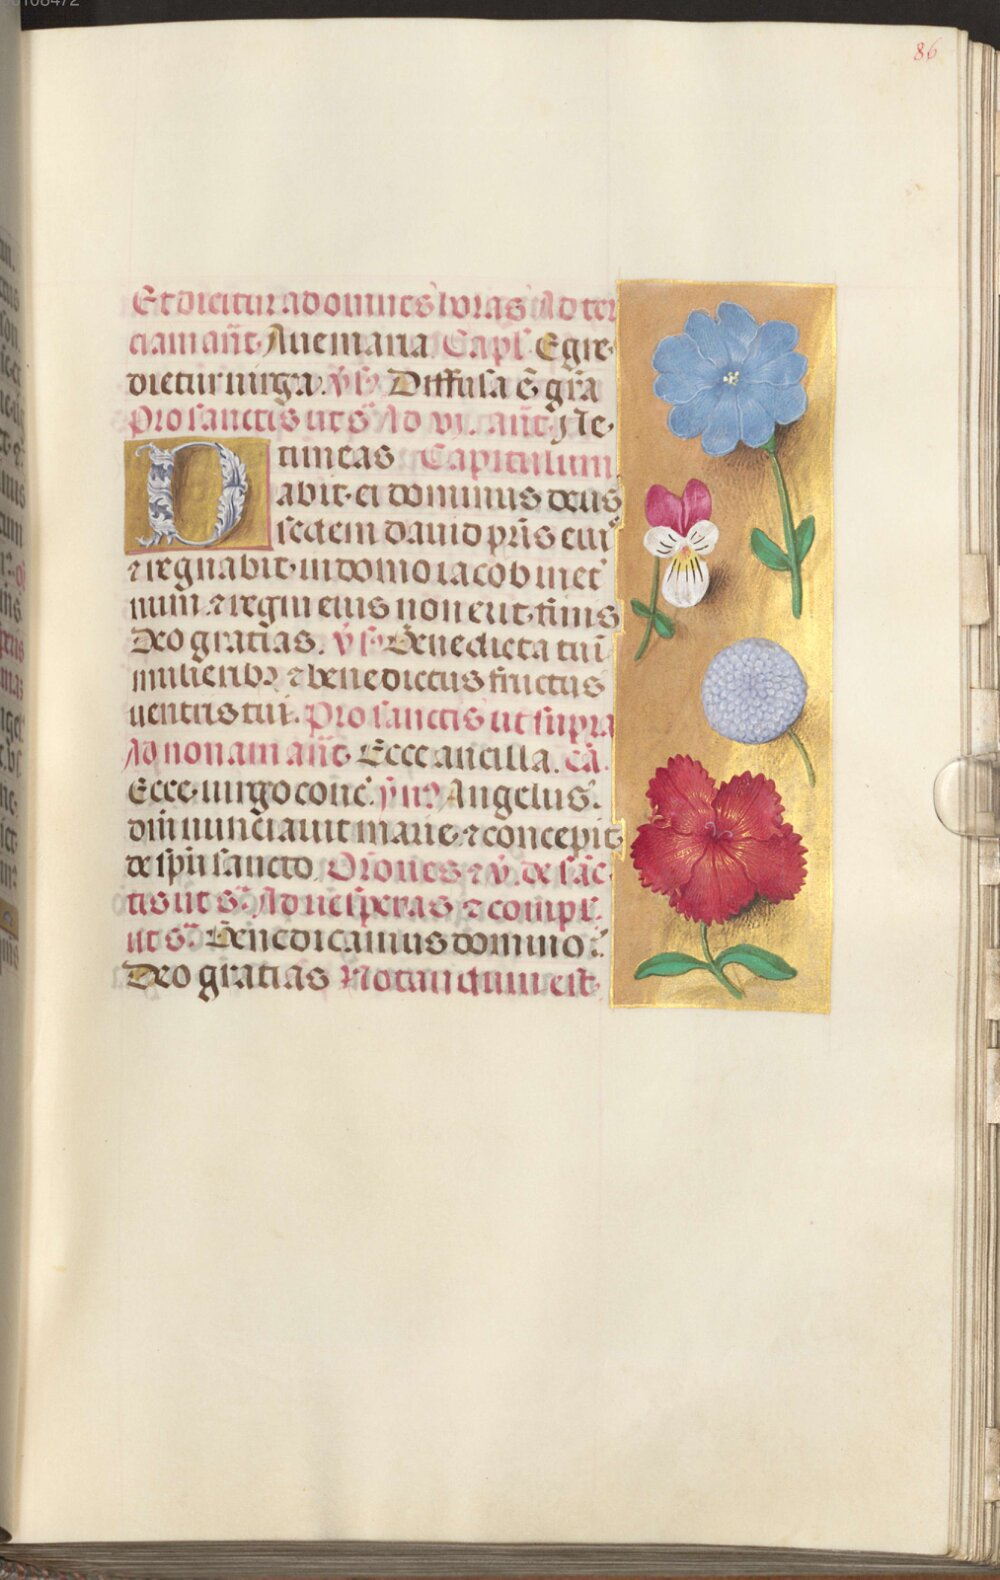 86
Et dicitur ad omnes horas Ad ter
ciam añt. Aue maria Capl̃. Egre
dietur uirga. v̄s̄. Diffusa ē gr̃a
Pro sanctis ut sᵃ Ad vj. añt. Ne
timeas Capitulum
Dabit ei dominus deus
sedem dauid pr̃is eiꝰ
⁊ regnabit in domo iacob in et̃
num. ⁊ regni eius non erit finis
Deo gratias. v̄s̄. Benedicta tu ī
mulieribꝫ ⁊ benedictus fructus
uentris tui. Pro sanctis ut supra
Ad nonam añt. Ecce ancilla. ca.
Ecce uirgo conc̃. Angelus.
dñi nunciauit marie. ⁊ concepit
de spũ sancto. Or̃ones ⁊ v̄. de sãc
tis ut sᵃ. Ad uesperas ⁊ compl̃.
ut sᵃ. Benedicamus domino.
Deo gratias Notandum est.